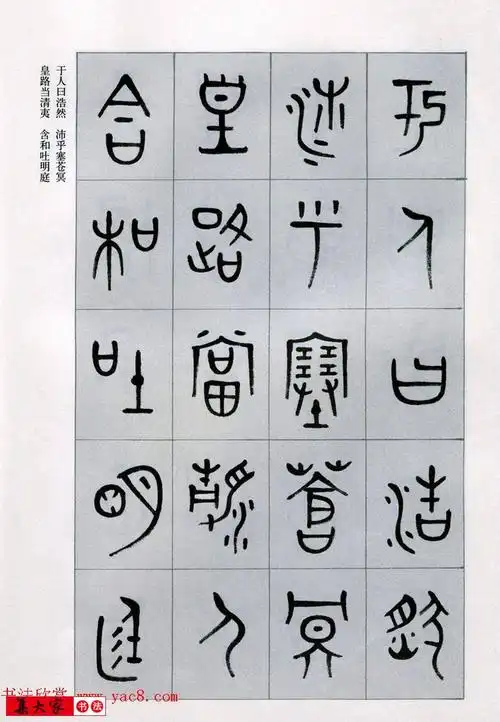 于人曰浩然
沛乎塞蒼冥
皇路當清夷
含和吐明庭
于人曰浩然 沛乎塞苍冥
皇路当清夷 含和吐明庭
书法欣赏 www.yac8.com
集大家 书法